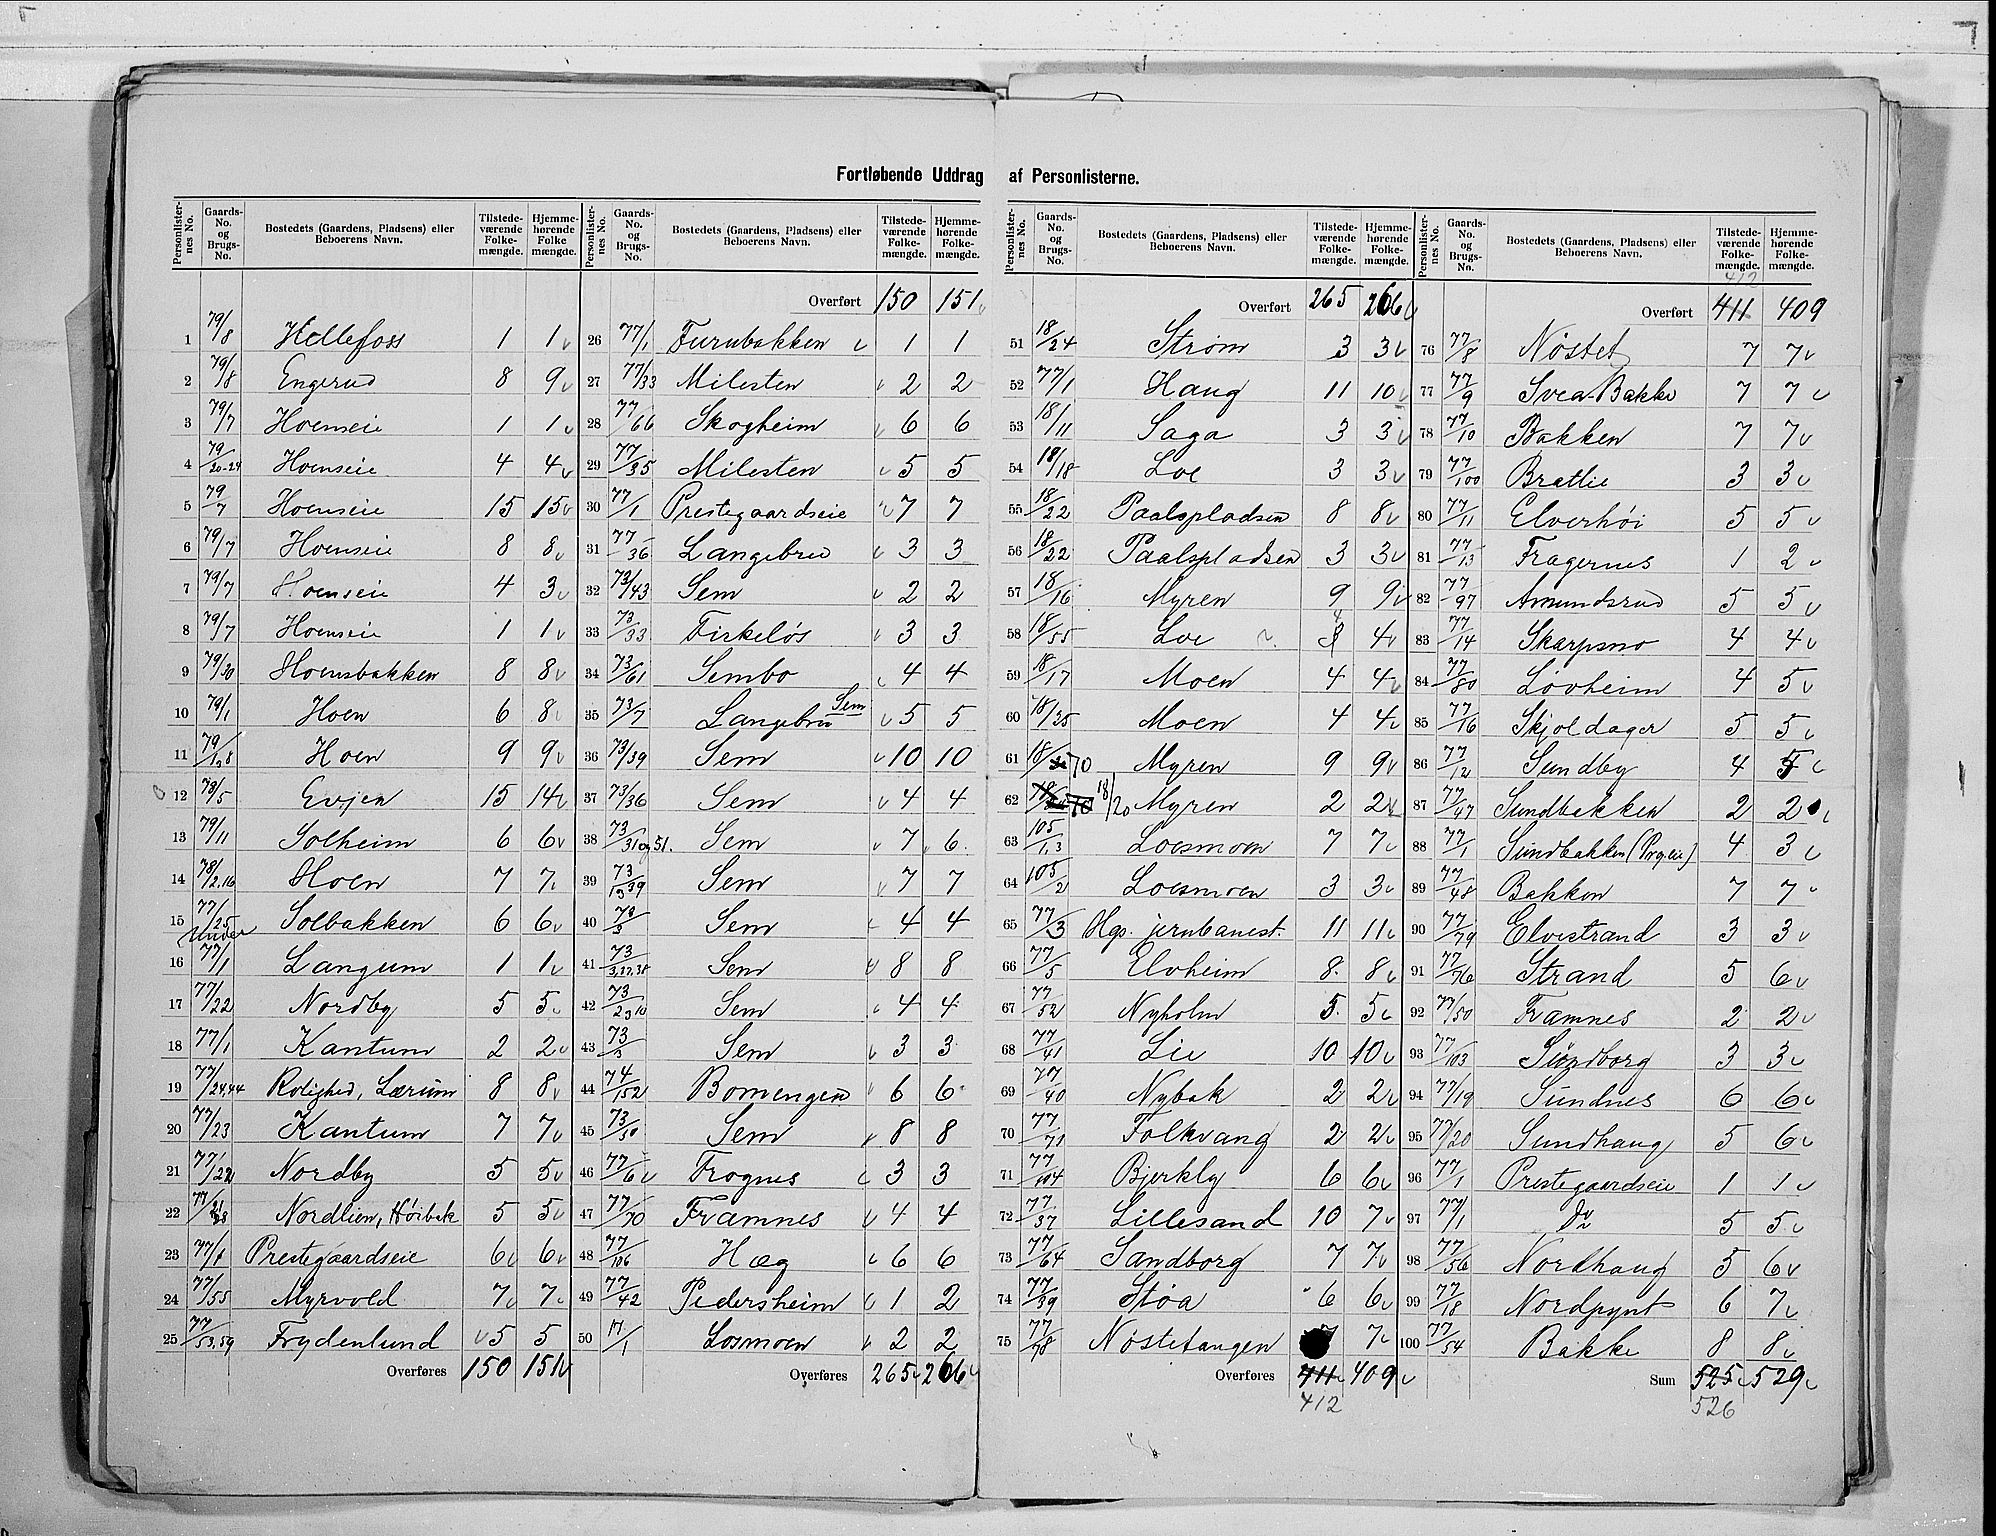 Fortløbende Uddrag af Personlisterne.
Personlisternes No. | Gaards-No. og Brugs-No. | Bostedets (Gaardens, Pladsens) eller Beboerens Navn. | Tilstedeværende Folkemængde. | Hjemmehørende Folkemængde.
1 79/8 Hellefoss 1 1
2 79/8 Engerud 8 9
3 79/7 Hoenseie 1 1
4 79/20-24 Hoenseie 4 4
5 79/7 Hoenseie 15 15
6 79/7 Hoenseie 8 8
7 79/7 Hoenseie 4 3
8 79/7 Hoenseie 1 1
9 79/30 Hoensbakken 8 8
10 79/1 Hoen 6 8
11 79/1,8 Hoen 9 9
12 78/5 Evjen 15 14
13 79/11 Solheim 6 6
14 78/2.16 Hoen 7 7
15 77/25 Solbakken 6 6
16 Under 77/1 Langum 1 1
17 77/22 Nordby 5 5
18 77/1 Kantum 2 2
19 77/24,44 Rolighed, Lærum 8 8
20 77/23 Kantum 7 7
21 77/22 Nordby 5 5
22 77/ Nordlien, Høibak 5 5
23 77/1 Prestegaardseie 6 6
24 77/55 Myrvold 7 7
25 77/53,59 Frydenlund 5 5
Overføres 150 151
Overført 150 151
26 77/1 Furubakken 1 1
27 77/33 Milesten 2 2
28 77/66 Skogheim 6 6
29 77/35 Milesten 5 5
30 77/1 Prestegaardseie 7 7
31 77/36 Langebru 3 3
32 73/43 Sem 2 2
33 73/33 Firkeløs 3 3
34 73/61 Sembo 4 4
35 73/7 Langebru Sem 5 5
36 73/39 Sem 10 10
37 73/36 Sem 4 4
38 73/31 og 51. Sem 7 6
39 73/ 39 Sem 7 7
40 73/3 Sem 4 4
41 73/3,27,38 Sem 8 8
42 73/2 10 Sem 4 4
43 73/3 Sem 3 3
44 74/152 Bomengen 6 6
45 73/50 Sem 8 8
46 77/6 Frognes 3 3
47 77/70 Framnes 4 4
48 77/106 Hæg 6 6
49 77/42 Pedersheim 1 2
50 17/1 Losmoen 2 2
Overføres 265 266
Personlisternes No. | Gaards-No. og Brugs-No. | Bostedets (Gaardens, Pladsens) eller Beboerens Navn. | Tilstedeværende Folkemængde. | Hjemmehørende Folkemængde.
Overført 265 266
51 18/24 Strøm 3 3
52 77/1 Haug 11 10
53 18/11 Saga 3 3
54 18/18 Loe 3 3
55 18/22 Paalspladsen 8 8
56 18/22 Paalspladsen 3 3
57 18/16 Myren 9 9
58 18/55 Loe 4 4
59 18/17 Moen 4 4
60 18/35 Moen 4 4
61 18/70 Myren 9 9
62 18/20 Myren 2 2
63 105/1,3 Loesmoen 7 7
64 105/2 Loesmoen 3 3
65 77/3 Hgs. jernbanest. 11 11
66 77/5 Elvheim 8 8
67 77/52 Nyholm 5 5
68 77/41 Lie 10 10
69 77/40 Nybak 2 2
70 77/71 Folkvang 2 2
71 77/104 Bjerkly 6 6
72 77/37 Lillesand 10 7
73 77/64 Sandborg 7 7
74 77/39 Støa 6 6
75 77/78 Nøstetangen 7 7
Overføres 411 409
412
412
Overført 411 409
76 77/8 Nøstet 7 7
77 77/9 Svea-Bakke 7 7
78 77/10 Bakken 7 7
79 77/100 Bratlie 3 3
80 77/11 Elverhöi 5 5
81 77/13 Fragernes 1 2
82 77/97 Amundsrud 5 5
83 77/14 Skarpsno 4 4
84 77/80 Løvheim 4 5
85 77/16 Skjoldager 5 5
86 77/12 Sundby 4 5
87 77/47 Sundbakken 2 2
88 77/1 Sundbakken (Prg.eie) 4 3
89 77/48 Bakken 7 7
90 77/79 Elvestrand 3 3
91 77/76 Strand 5 6
92 77/50 Framnes 2 2
93 77/103 Sundborg 3 3
94 77/19 Sundnes 6 6
95 77/20 Sundhaug 5 6
96 77/1 Prestegaardseie 1 1
97 77/1 Do 5 5
98 77/56 Nordhaug 5 6
99 77/18 Nordpynt 6 7
100 77/54 Bakke 8 8
Sum 525 529
526